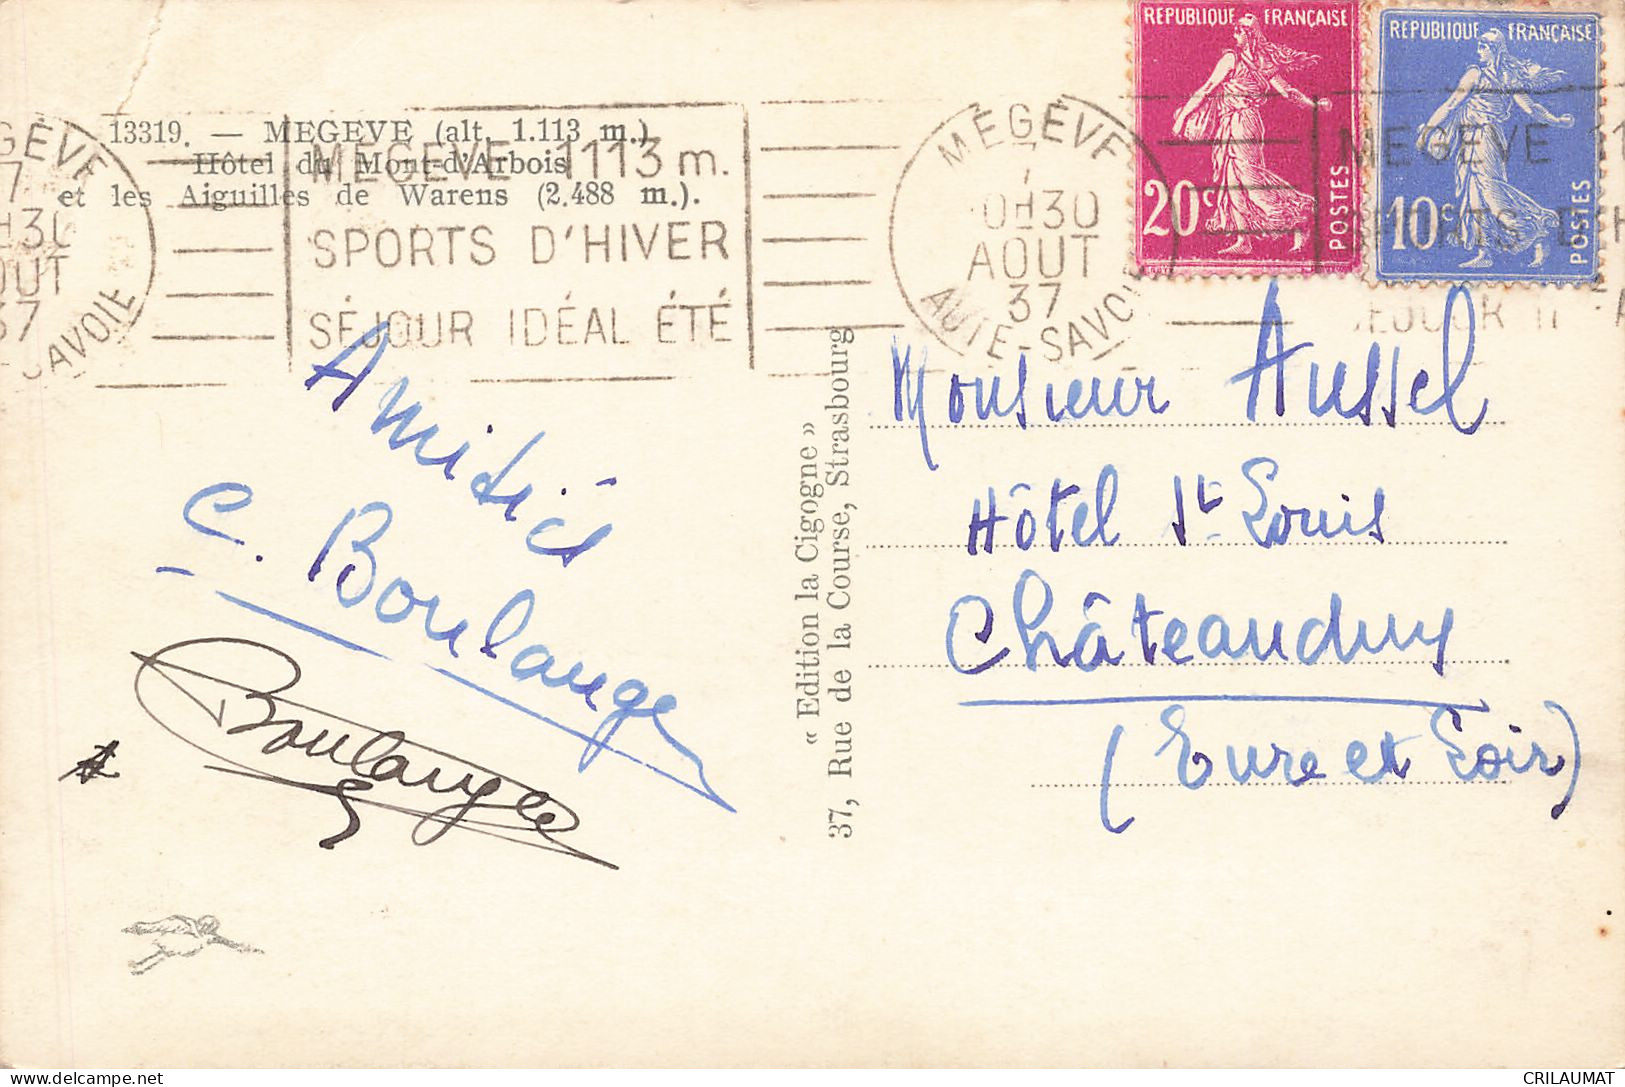 13319. — MEGEVE (alt. 1.113 m.)
Hôtel du Mont-d'Arbois
et les Aiguilles de Warens (2.488 m.).
MEGÈVE 1113 m.
SPORTS D'HIVER
SÉJOUR IDÉAL ÉTÉ
MEGÈVE
0H30
AOUT
37
AUTE-SAVOIE
REPUBLIQUE FRANÇAISE
20c
POSTES
REPUBLIQUE FRANÇAISE
10c
POSTES
Amitiés
C. Boulange
Boulange
« Edition la Cigogne »
37, Rue de la Course, Strasbourg
Monsieur Aussel
Hôtel St Louis
Châteauduny
(Eure et Loir)
CRILAUMAT